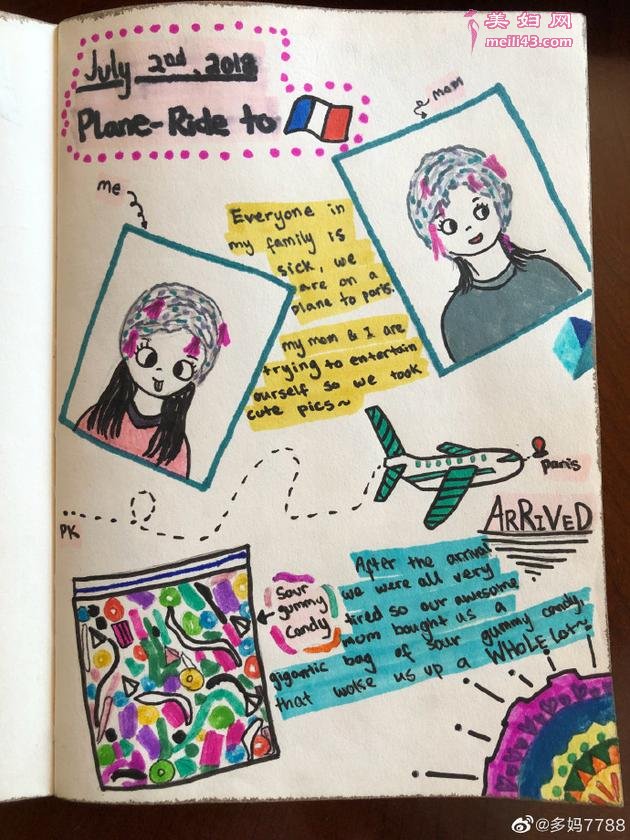 美妇网
meili43.com
July 2nd, 2018
Plane-Ride to
mom
me
Everyone in
my family is
sick, we
are on a
plane to paris.
my mom & I are
trying to entertain
ourself so we took
cute pics~
paris
PK
ARRIVED
sour
gummy
candy
After the arrival
we were all very
tired so our awesome
mom bought us a
gigantic bag of sour gummy candy,
that woke us up a WHOLE lot~
@多妈7788